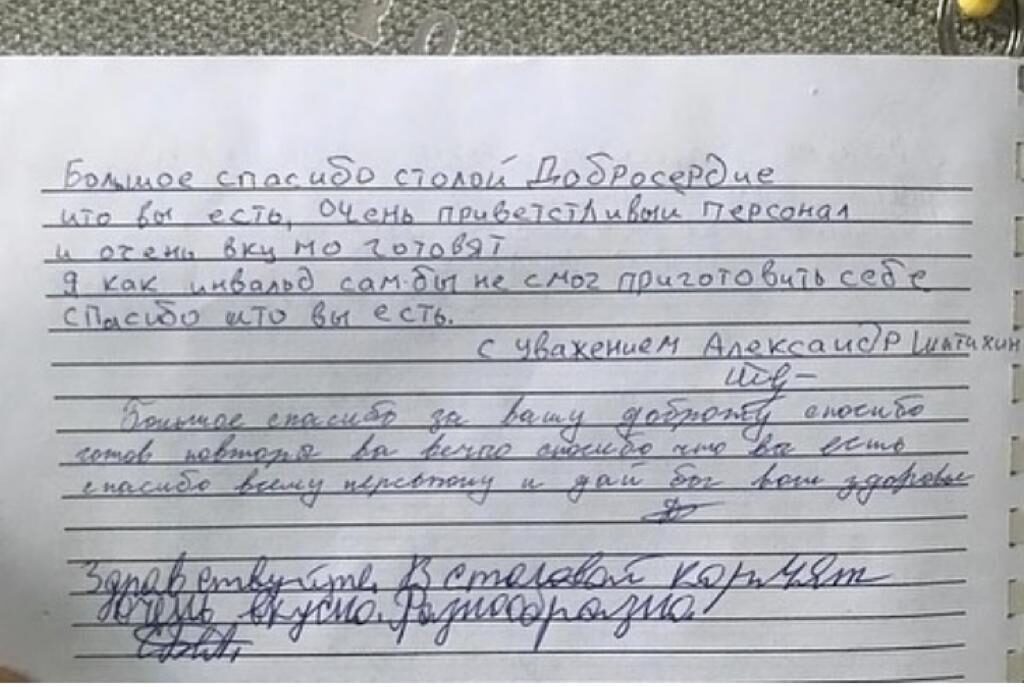 Большое спасибо столой Добросердие
что вы есть, очень приветстливый персонал
и очень вкумо готовят
я как инвальд сам бы не смог приготовить себе
спасибо што вы есть.
с уважением Александр Шатихин
Большое спасибо за вашу доброту спосибо
готов повторя ва вечно спосибо что вы есть
спасибо всему персоналу и дай бог вам здоровье
Здравствуйте. В столовой кормят
очень вкусно. Разнообразно.